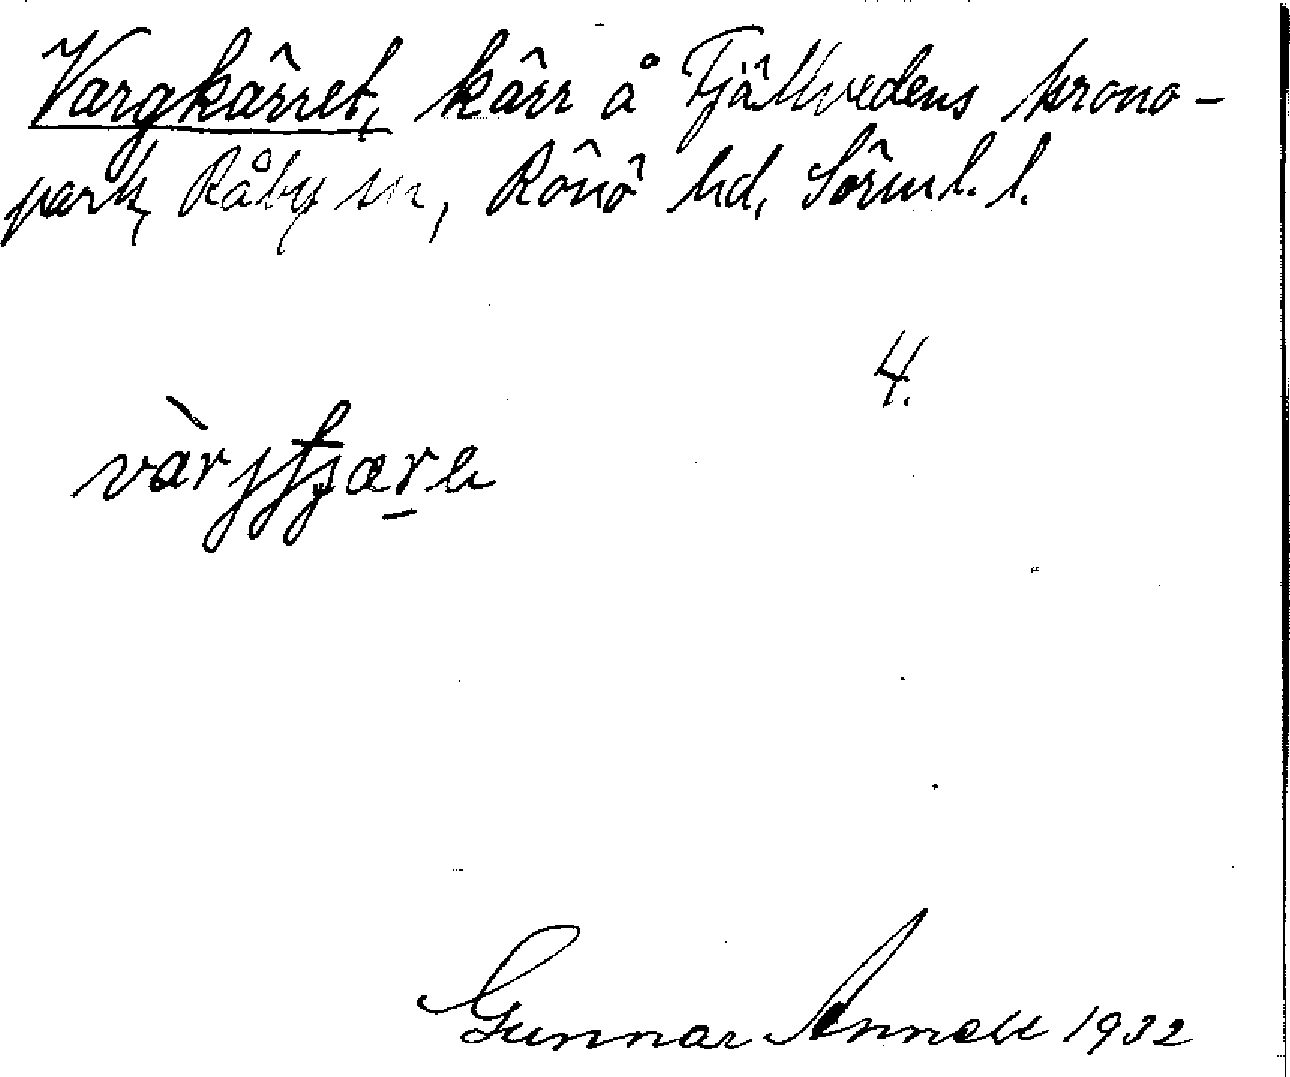 Vargkärret, kärr å Fjällvedens krono-
park, Råby sn, Rönö hd, Sörml. l.
4.
Gunnar Annell 1932